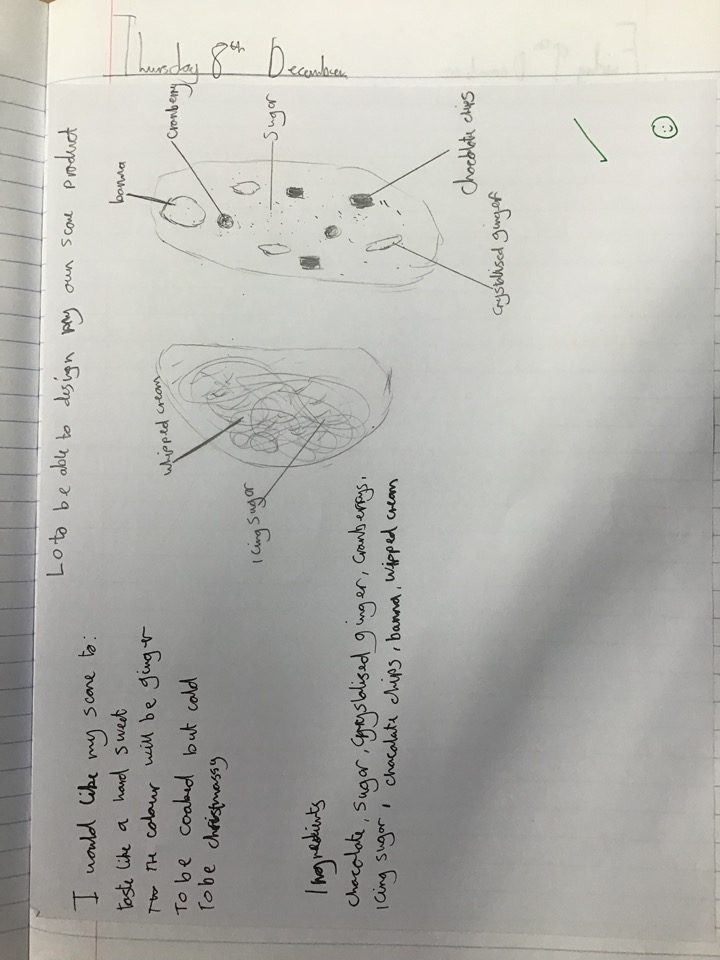 Thursday 8th December
Lo to be able to design my own scone product
I would like my scone to:
taste like a hard sweet
The colour will be ginger
To be coaked but cold
To be christmassy
whipped cream
Icing sugar
banna
cranberry
sugar
chocolate chips
crystalised ginger
Ingredients
chocolate, sugar, crystalised ginger, cranberrys,
Icing sugar, chocolate chips, banna, wipped cream